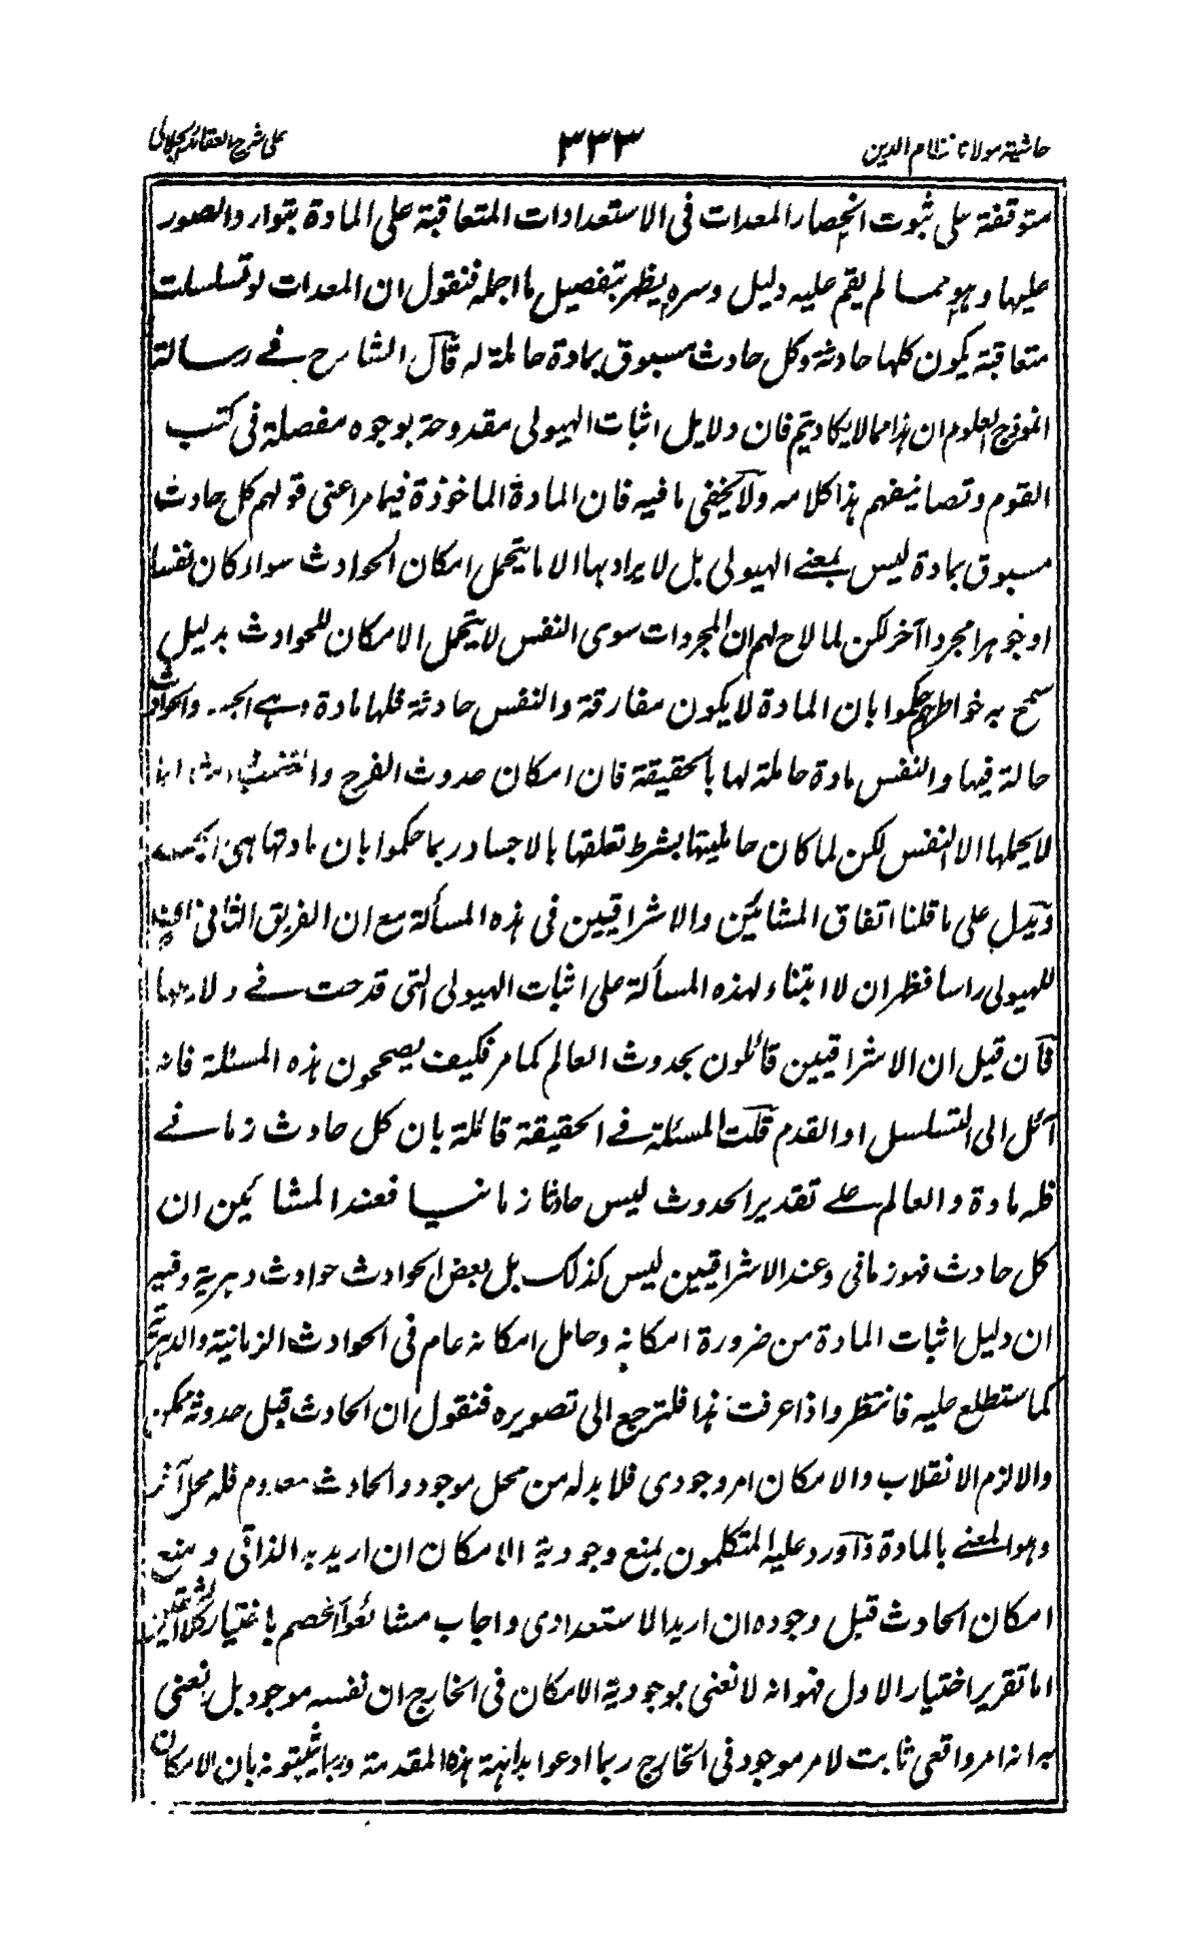 حاشية مولانا نظام الدين ٣٣٣ على شرح العقائد الجلالي
متوقفة على ثبوت انحصار المعدات فى الاستعدادات المتعاقبة على المادة بتوارد الصور
عليها وهو مما لم يقم عليه دليل وسره يظهر بتفصيل ما اجمله فنقول ان المعدات لو تسلسلت
متعاقبة يكون كلها حادثة وكل حادث مسبوق بمادة حاملة له قال الشارح في رسالة
انموذج العلوم ان هذا مما لا يكاد يتم فان دلايل اثبات الهيولى مقدوحة بوجوه مفصلة فى كتب
القوم وتصانيفهم هذا كلامه ولا يخفى ما فيه فان المادة الماخوذة فيما مر اعنى قولهم كل حادث
مسبوق بمادة ليس بمعنے الهيولى بل لا يراد بها الا ما يتحمل امكان الحوادث سواء كان نفسا
او جوهرا مجردا آخر لكن لما لاح لهم ان المجردات سوى النفس لا يتحمل الامكان للحوادث بدليل
سمح به خواطرهم حكموا بان المادة لا يكون مفارقة والنفس حادثة فلها مادة وهے والحوادث
حالة فيها والنفس مادة حاملة لها بالحقيقة فان امكان حدوث الفرح والغضب
لا يحملها الا النفس لكن لما كان حامليتها بشرط تعلقها بالاجساد ربما حكموا بان مادتها هى
ويدل على ما قلنا اتفاق المشائين والاشراقيين فى هذه المسألة مع ان الفريق الثانى
للهيولى راسا فظهر ان لا ابتناء لهذه المسألة على اثبات الهيولى التى قدحت فے دلايلها
فان قيل ان الاشراقيين قائلون بحدوث العالم كما مر فكيف يصححون هذه المسئلة فانه
آئل الى التسلسل او القدم قلت المسئلة فے الحقيقة قائلة بان كل حادث زمانے
فله مادة والعالم علے تقدير الحدوث ليس حادثا زمانيا فعند المشائين ان
كل حادث فهو زمانى وعند الاشراقيين ليس كذلك بل بعض الحوادث حوادث دهرية وفيه
ان دليل اثبات المادة من ضرورة امكانه وحامل امكانه عام فى الحوادث الزمانية والدهرية
كما ستطلع عليه فانتظر واذا عرفت هذا فلترجع الى تصويره فنقول ان الحادث قبل حدوثه ممكن
والا لزم الانقلاب والامكان امر وجودى فلا بد له من محل موجود والحادث معدوم فله محل آخر
وهو المعنے بالمادة واورد عليه المتكلمون بمنع وجودية الامكان ان اريد به الذاتى ومنع
امكان الحادث قبل وجوده ان اريد الاستعدادى واجاب مشائعوا الخصم باختيار كلا الشقين
اما تقرير اختيار الاول فهو انه لا نعنى بوجودية الامكان فى الخارج ان نفسه موجود بل نعنى
به انه امر واقعى ثابت لامر موجود فى الخارج ربما ادعوا بداهة هذه المقدمة وربما يثبتونه بان الامكان